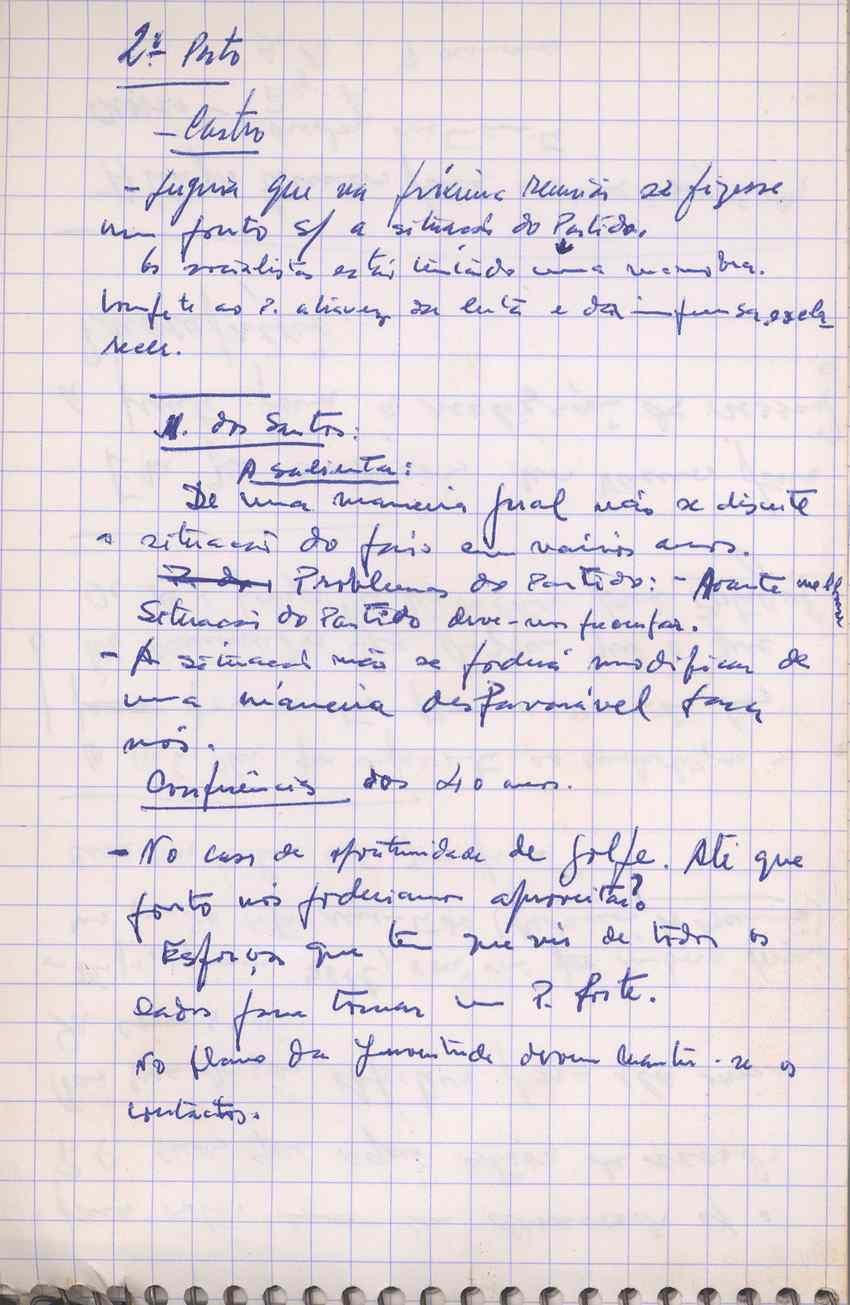 2º Ponto
- Castro
- Sugeria que na próxima reunião se fizesse
um ponto s/ a situação do Partido.
Os socialistas estão tentando uma manobra.
Compete ao P. atravez da luta e da imprensa escla
recer.
M. dos Santos:
A salientar:
De uma maneira geral não se discute
a situação do país em vários anos.
Problemas do Partido: - Avante melhorar
Situação do Partido deve-nos preocupar.
- A situação não se poderá modificar de
uma maneira desfavorável para
nós.
Conferências dos 40 anos.
- No caso de oportunidade de golpe. Até que
ponto nós poderiamos aproveitar?
Esforços que tem que vir de todos os
lados para tornar um P. forte.
No plano da Juventude devem manter-se os
contactos.